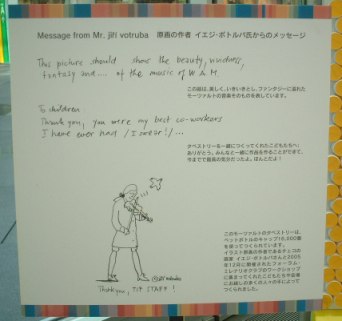 Message from Mr. jiří votruba 原画の作者 イエジ・ボトルバ氏からのメッセージ
This picture should show the beauty, kindness,
fantasy and.... of the music of W.A.M.
この絵は、美しく、いきいきとし、ファンタジーに溢れた
モーツァルトの音楽そのものを表しています。
To children:
Thank you, you were my best co-workers
I have ever had / I swear! / ...
タペストリーを一緒につくってくれたこどもたちへ:
ありがとう。みんなと一緒に作品を作ることができて、
今までで最高の気分だったよ。ほんとだよ!
このモーツァルトのタペストリーは、
ペットボトルのキャップ
を使ってつくられています。
イラスト原画の作者であるチェコの
画家 イエジ・ボトルバさんと2005
年12月に開催されたフォーラム・
ミレナリオクラブのワークショップ
に集まってくれたこどもたちや会場
にお越しの多くの人々の手によって
つくられました。
©jiří votruba
Thank you, TIF STAFF!